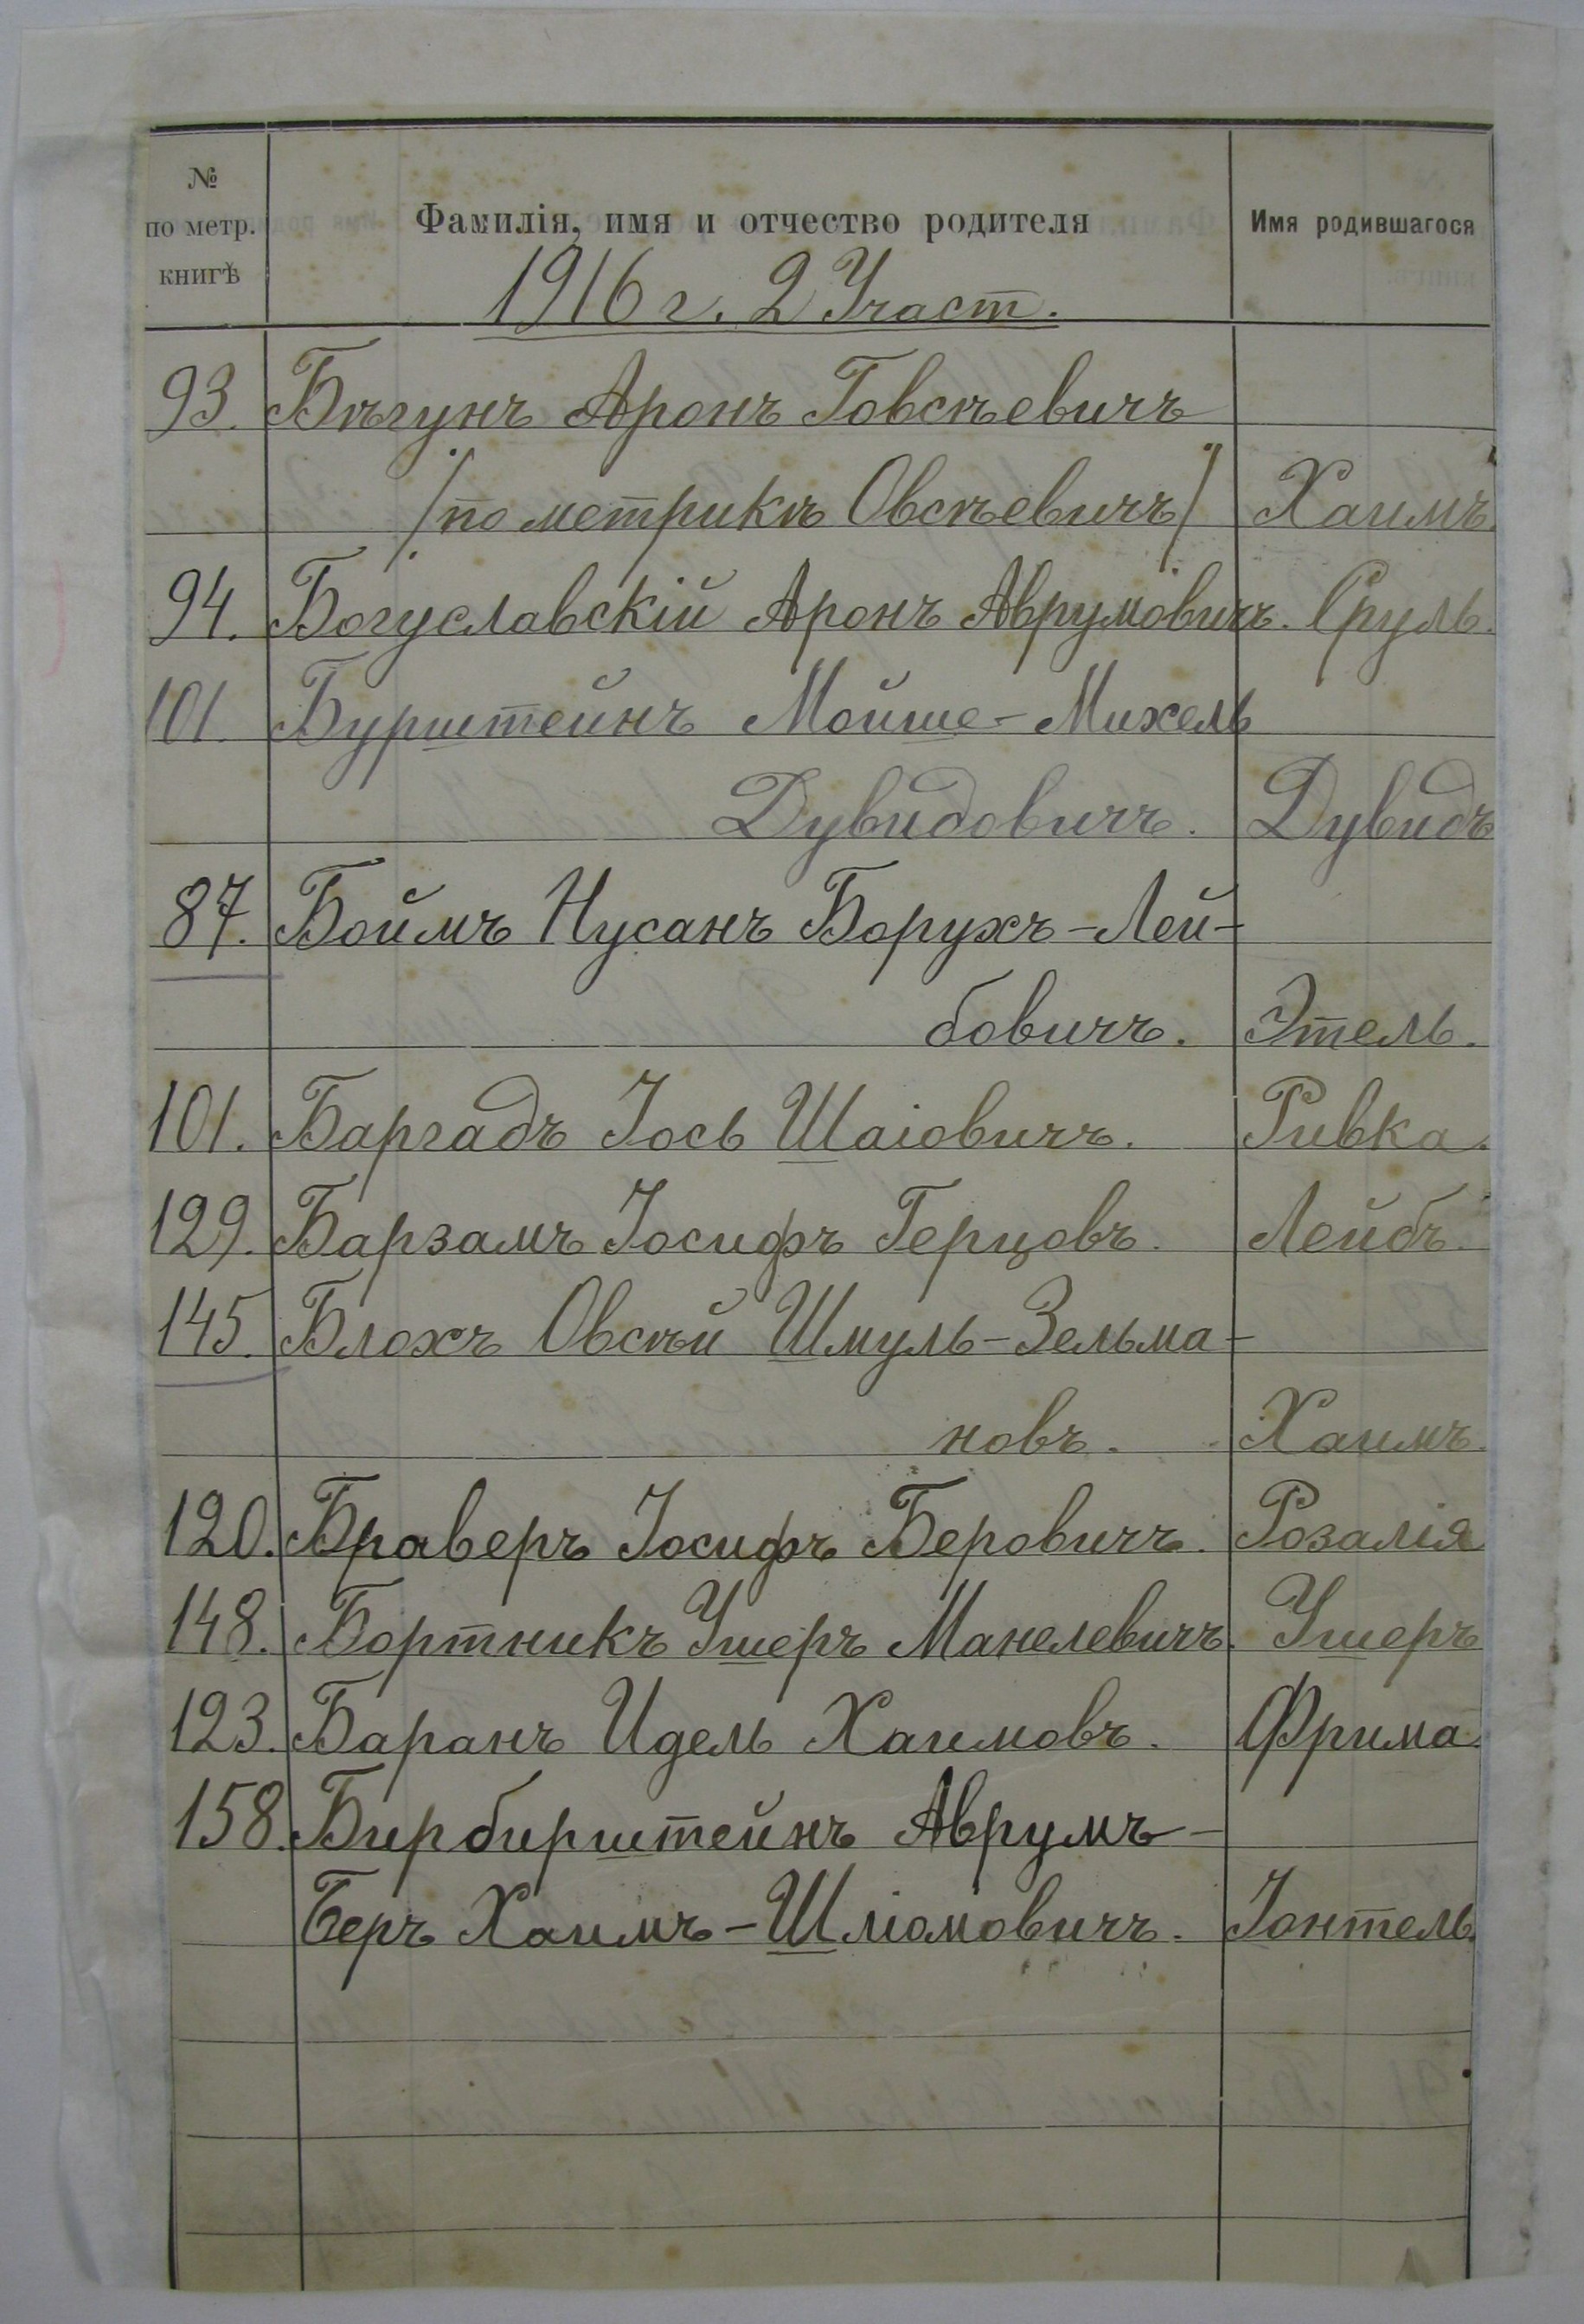 № по метр. книгѣ Фамилія, имя и отчество родителя Имя родившагося
1916 г. 2 Участ.
93. Бѣгунъ Аронъ Говсѣевичъ
/по метрикѣ Овсѣевичъ/ Хаимъ.
94. Богуславскій Аронъ Аврумовичъ. Сруль.
101. Бурштейнъ Мойше-Михель
Дувидовичъ. Дувидъ
87. Боймъ Нусанъ Борухъ-Лей-
бовичъ. Этель.
101. Баргадъ Іось Шаіовичъ. Ривка.
129. Барзамъ Іосифъ Герцовъ. Лейбъ.
145. Блохъ Овсѣй Шмуль-Зельма-
новъ. Хаимъ.
120. Браверъ Іосифъ Беровичъ. Розалія
148. Бортникъ Ушеръ Манелевичъ. Ушеръ
123. Баранъ Идель Хаимовъ. Фрима.
158. Бирбирштейнъ Аврумъ-
Беръ Хаимъ-Шліомовичъ. Іонтель.